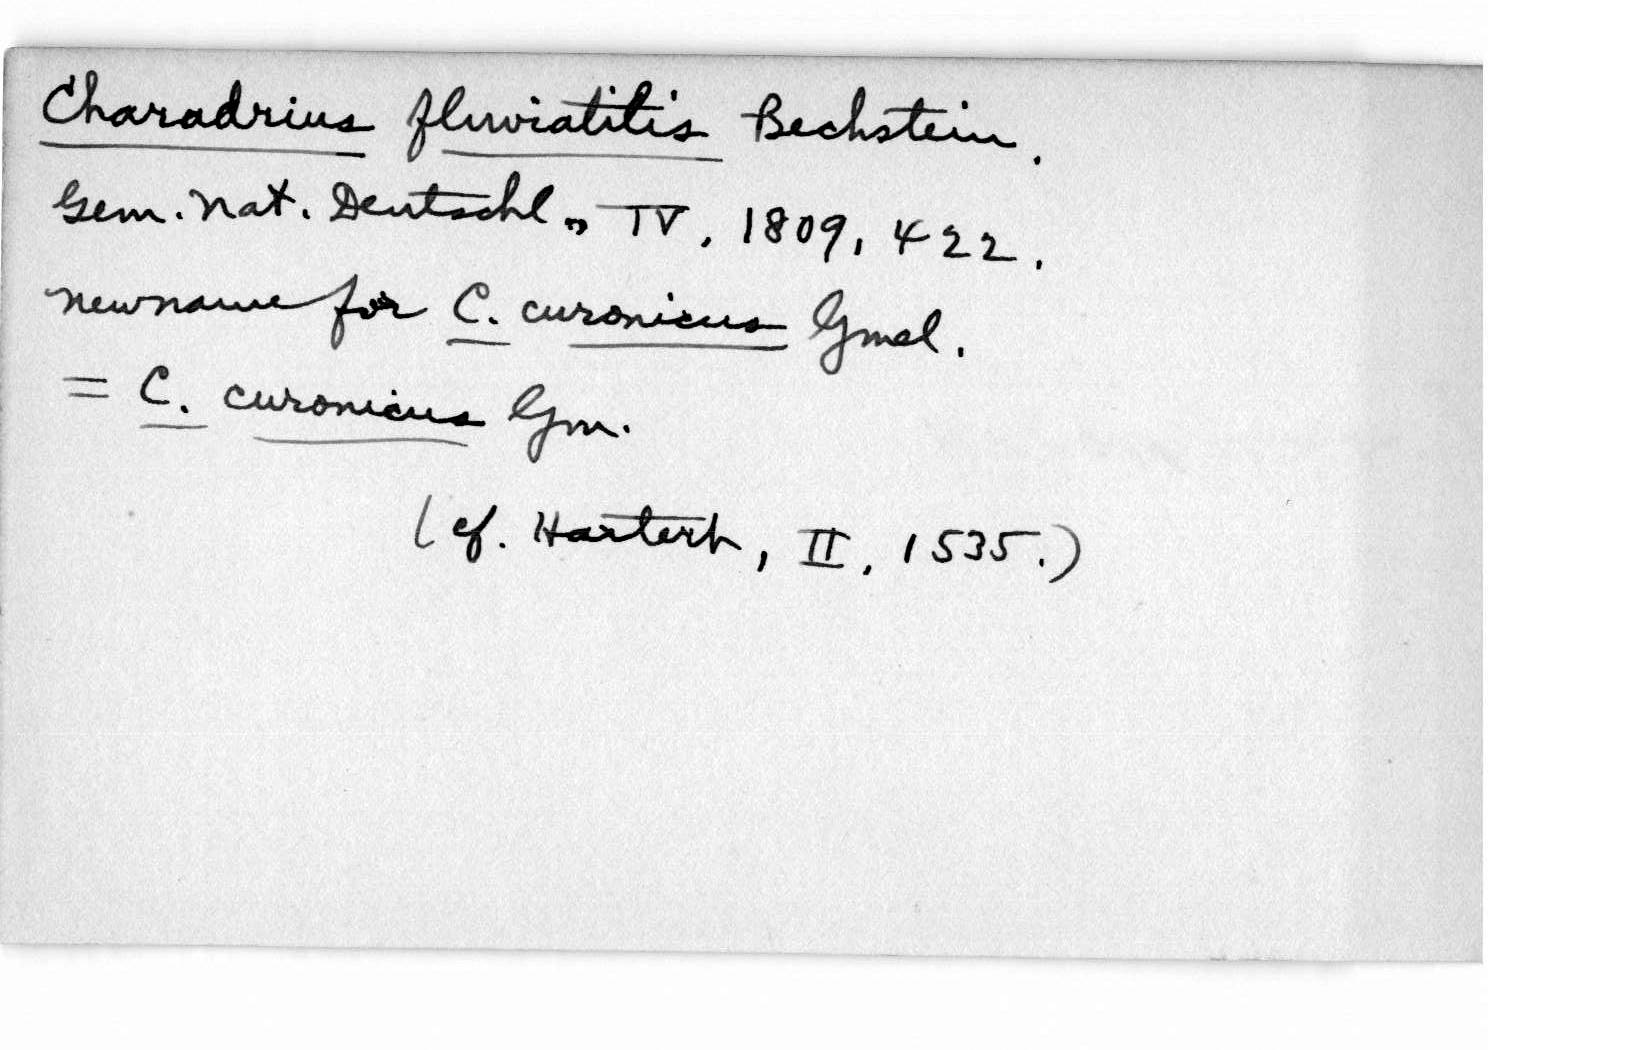 Charadrius fluviatilis Bechstein.
Gem. Nat. Deutschl., IV, 1809, 422.
new name for C. curonicus Gmel.
= C. curonicus Gm.
(cf. Hartert, II, 1535.)